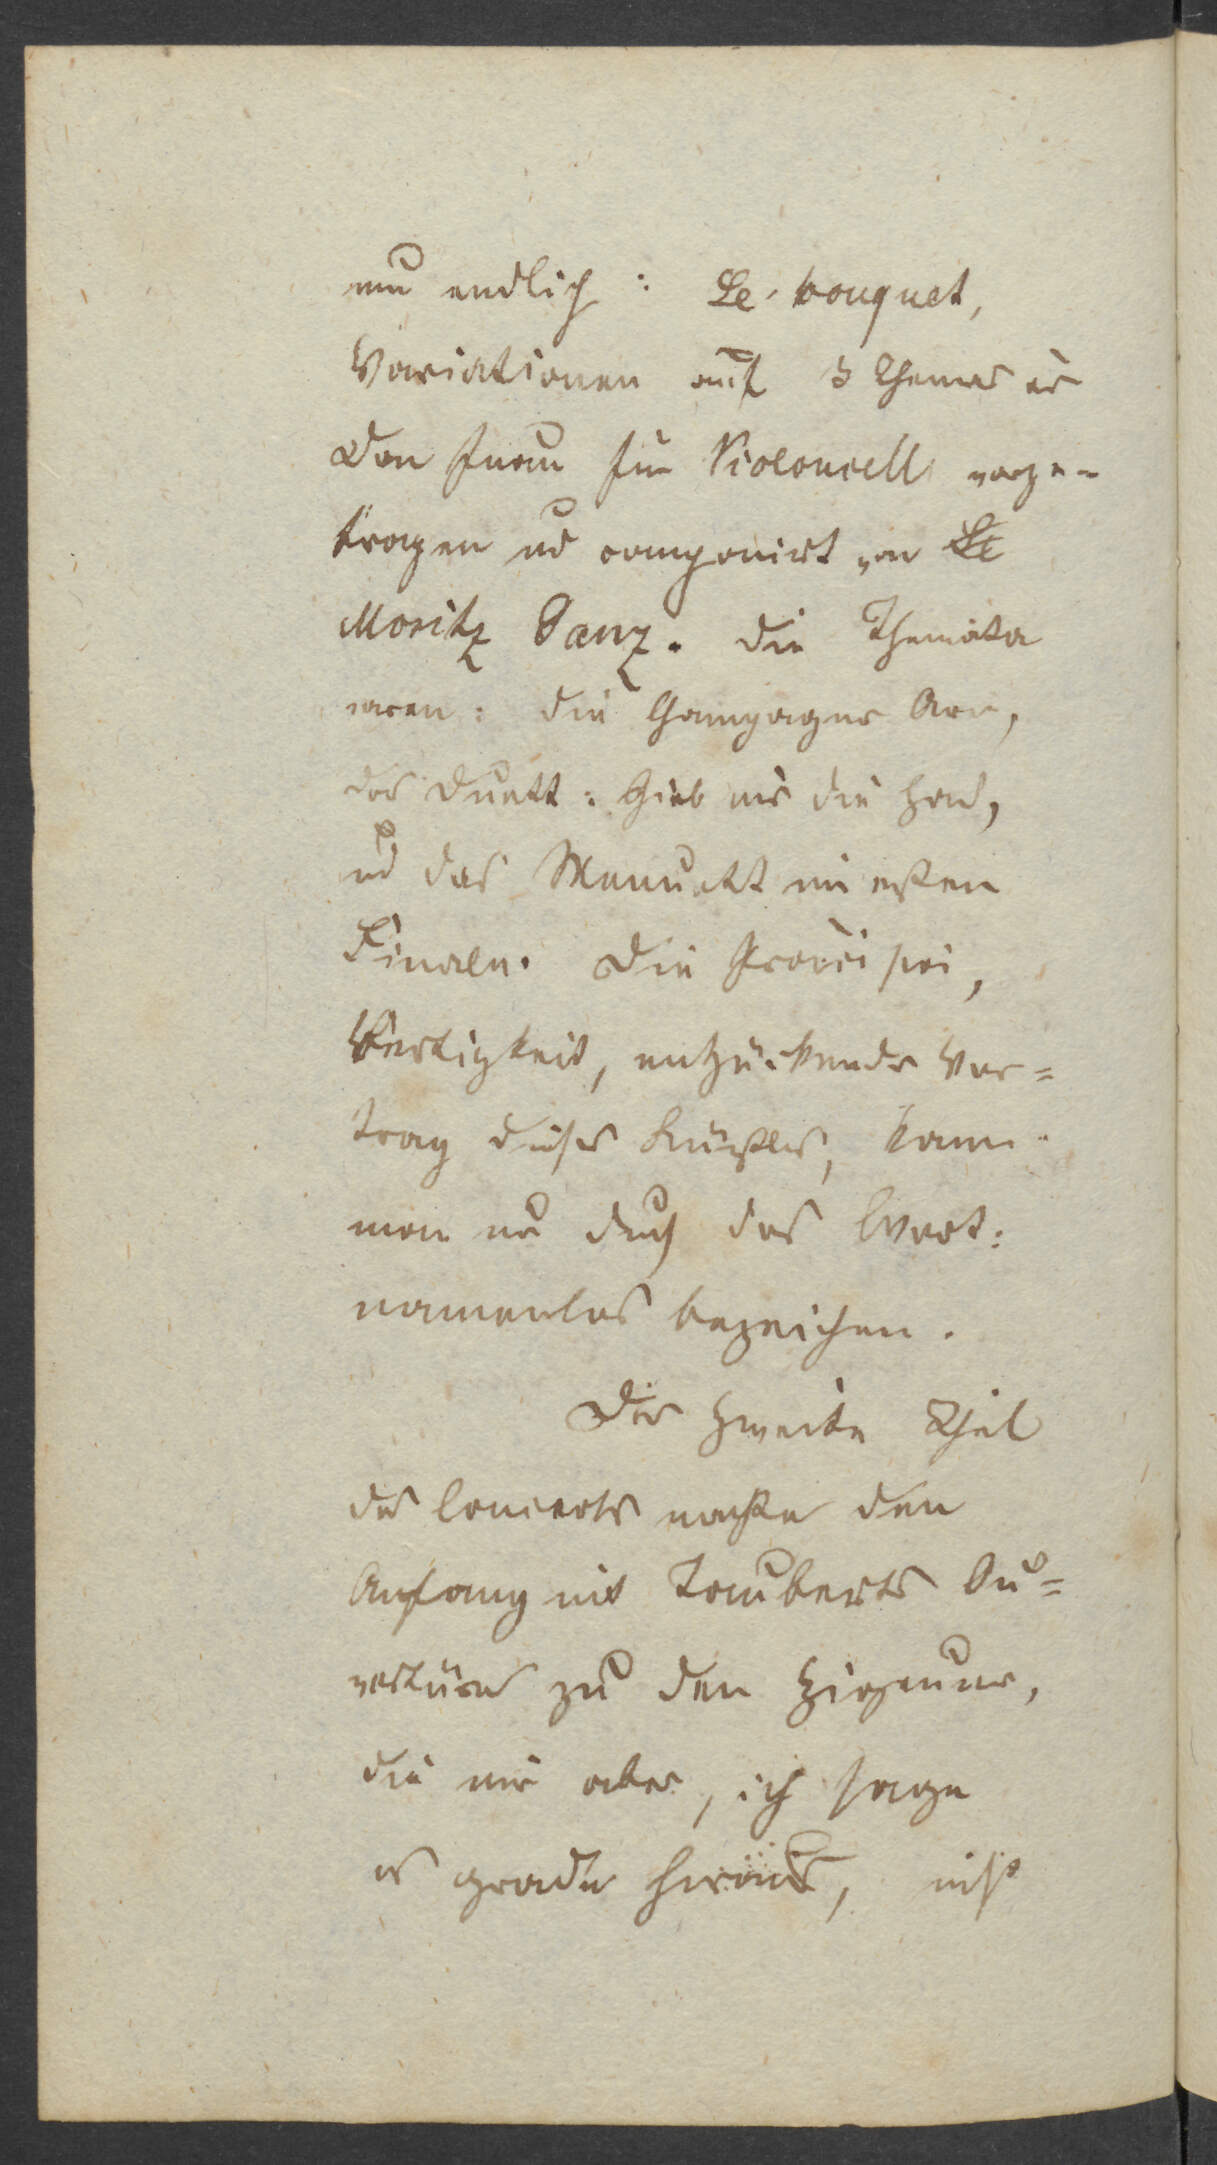 nun endlich: Le bouquet,
Variationen auf 3 Themas aus
Don Juan für Violoncell vorge-
tragen und componirt von
Moritz Ganz. Die Themata
waren: die Champagner Arie,
das Duett: Gieb mir die Hand,
und das Menuett im ersten
Finale. Die Präcision,
Fertigkeit, entzückende Vor=
trag dieses Künstlers, kann
man nur durch das Wort:
namenlos bezeichen.
Der zweite Theil
des Concerts machte den
Anfang mit Tauberts Ou=
vertüre zu den Zigeuner,
die mir aber, ich sage
es grade heraus, nicht